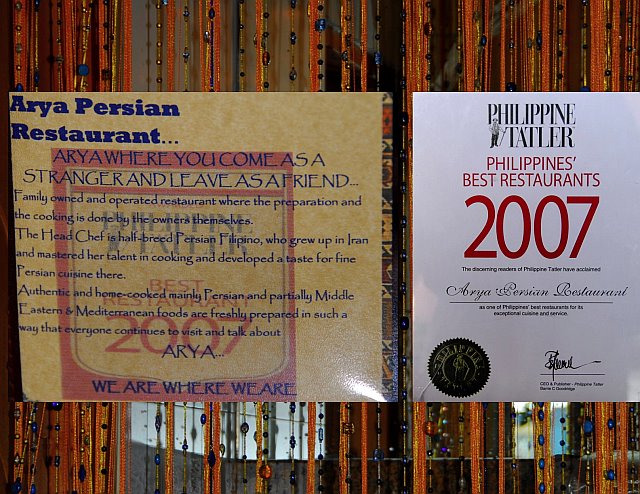 Arya Persian
Restaurant...
ARYA WHERE YOU COME AS A
STRANGER AND LEAVE AS A FRIEND...
Family owned and operated restaurant where the preparation and
the cooking is done by the owners themselves.
The Head Chef is half-breed Persian Filipino, who grew up in Iran
and mastered her talent in cooking and developed a taste for fine
Persian cuisine there.
Authentic and home-cooked mainly Persian and partially Middle
Eastern & Mediterranean foods are freshly prepared in such a
way that everyone continues to visit and talk about
ARYA...
WE ARE WHERE WE ARE
PHILIPPINE
TATLER
BEST
RESTAURANTS
2007
PHILIPPINE
TATLER
PHILIPPINES'
BEST RESTAURANTS
2007
The discerning readers of Philippine Tatler have acclaimed
Arya Persian Restaurant
as one of Philippines' best restaurants for its
exceptional cuisine and service.
CEO & Publisher - Philippine Tatler
Barrie C Goodridge